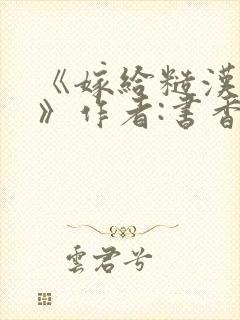 《嫁给糙漢
》作者:書香
雲君兮